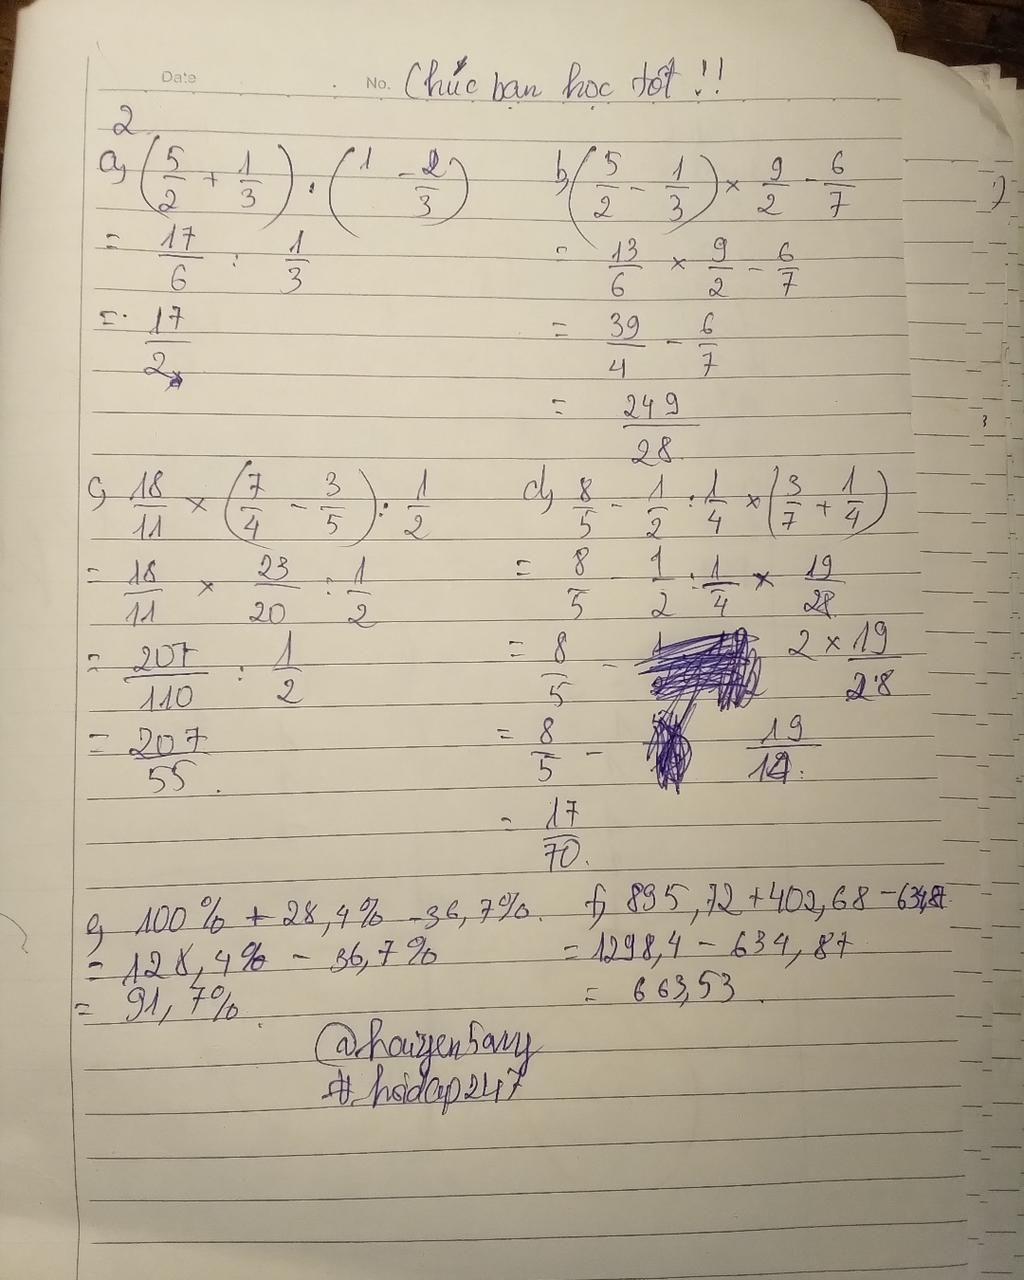 Date No. Chúc bạn học tốt !!
2
a, (5/2 + 1/3) : (1 - 2/3)
= 17/6 : 1/3
= 17/2
b, (5/2 - 1/3) × 9/2 - 6/7
= 13/6 × 9/2 - 6/7
= 39/4 - 6/7
= 249/28
c, 18/11 × (7/4 - 3/5) : 1/2
= 18/11 × 23/20 : 1/2
= 207/110 : 1/2
= 207/55.
d, 8/5 - 1/2 : 1/4 × (3/7 + 1/4)
= 8/5 - 1/2 : 1/4 × 19/28
= 8/5 - 2 × 19/28
= 8/5 - 19/14.
= 17/70.
e, 100% + 28,4% - 36,7%.
= 128,4% - 36,7%
= 91,7%.
f, 895,72 + 402,68 - 634,87
= 1298,4 - 634,87
= 663,53.
#hoidap247